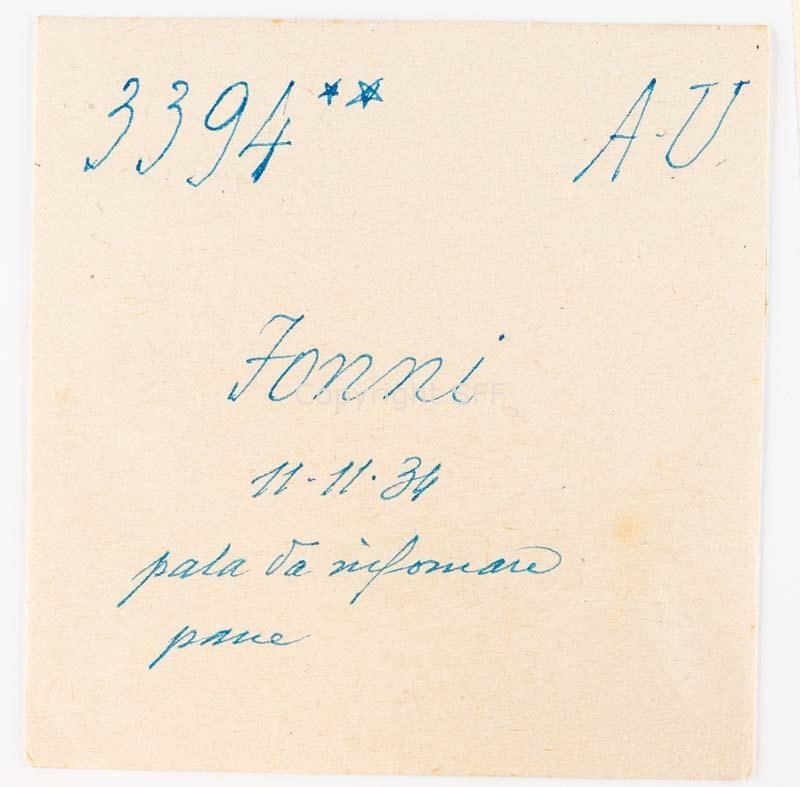 3394** A-U
Fonni
11-11-34
pala da infornare
pane
Copyright SFF